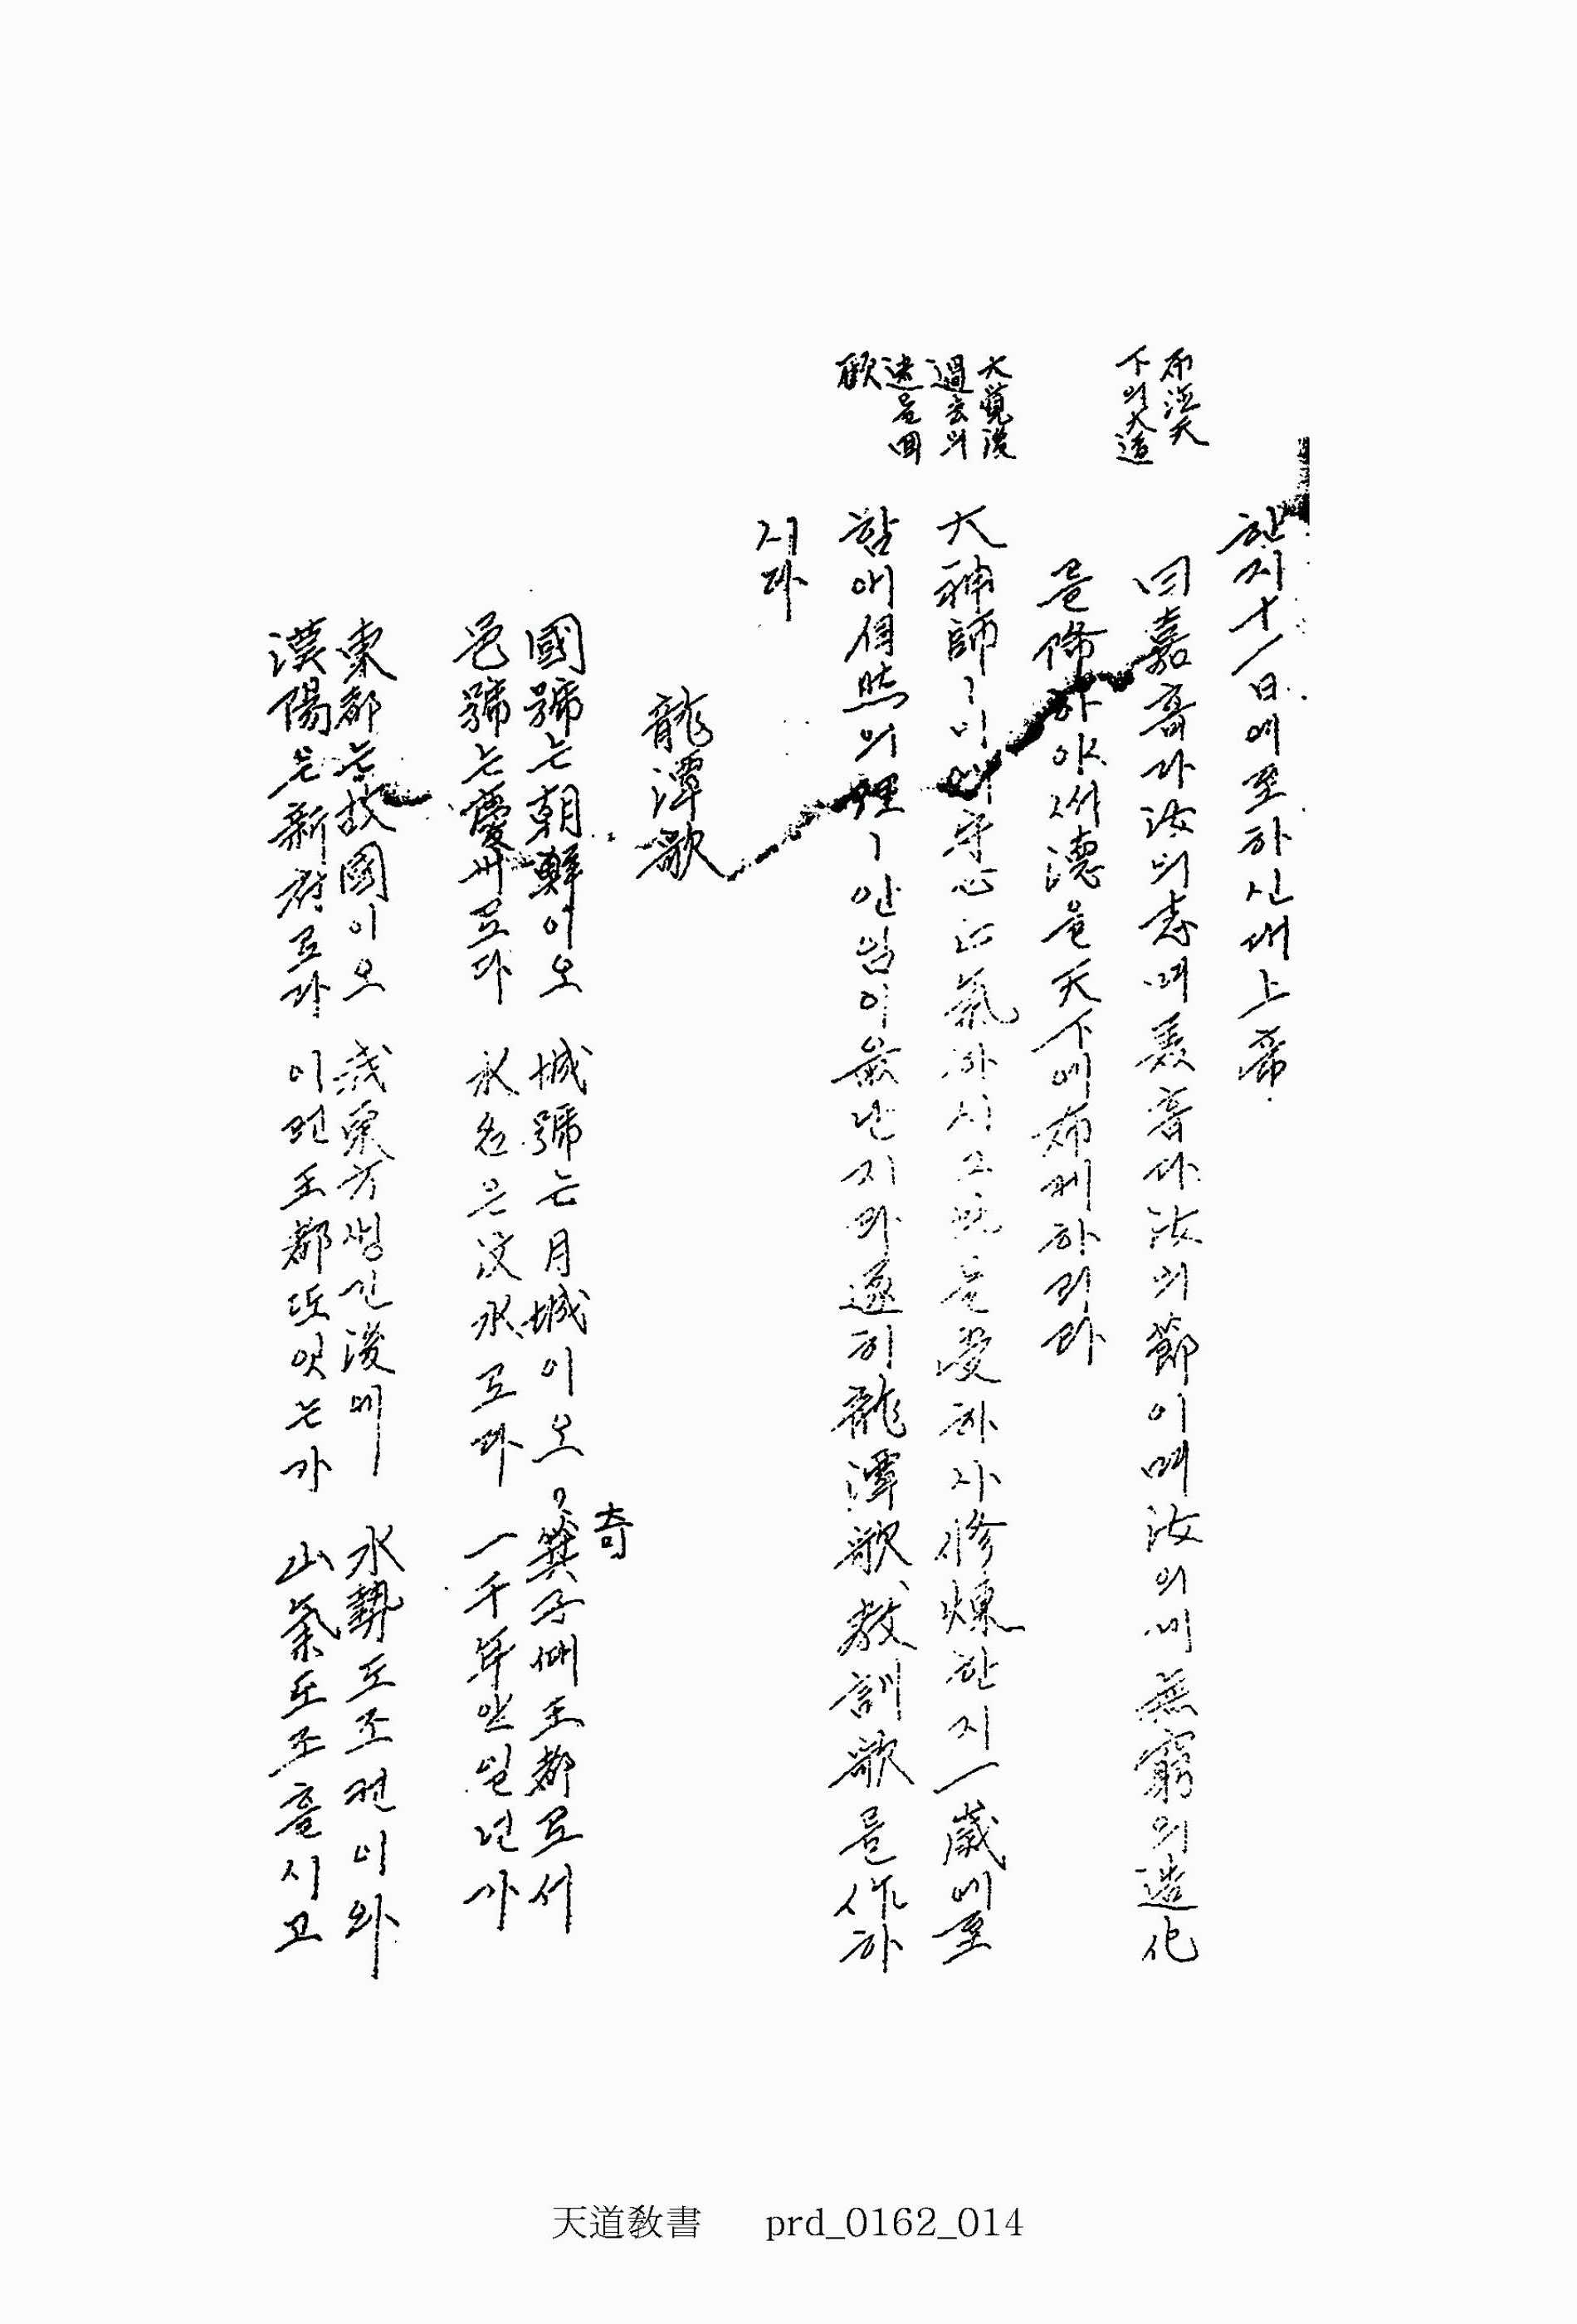 한지十一日에至하신대上帝
布德天
下의大道
曰嘉哉라汝의志며美哉라汝의節이며汝의에無窮의造化
를條하야써德을天下에布케하리라
大覺後
過去의
迷을回
歎
大神師ㅣ이에守心正氣하시고呪를受하사修煉한지一歲에至
함애自然의理ㅣ안임이無난지라遂히龍潭歌敎訓歌를作하
시다
龍潭歌
國號는朝鮮이오 城號는月城이오 箕子때王都로서
奇
邑號는慶州로다 水名은汶水로다 一千年안일넌가
東都는故國이오 我東方생긴後에 水勢도조컨이와
漢陽은新府로다 이런王都또잇는가 山氣도조흘시고
天道敎書 prd_0162_014